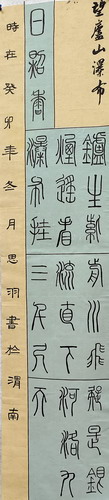 望廬山瀑布
日照香
鑪生紫
煙遙看
瀑布挂
前川飛
流直下
三千尺
疑是銀
河落九
天
時在癸卯年冬月思羽書於渭南